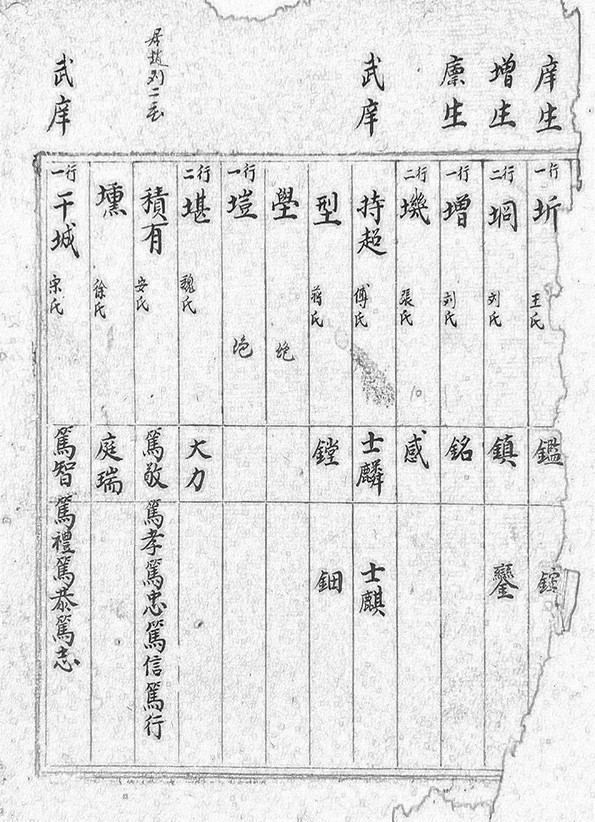 庠生 一行 圻 王氏 鑑
增生 二行 垌 刘氏 鎮 鑾
廪生 一行 增 刘氏 銘
二行 墣 張氏 感
武庠 持超 傅氏 士麟 士麒
型 蔣氏 鏜 鈿
壆 绝
一行 塏 绝
二行 堪 魏氏 大力
積有 安氏 篤敬 篤孝 篤忠 篤信 篤行
壎 徐氏 庭瑞
武庠 一行 干城 宗氏 篤智 篤禮 篤恭 篤志